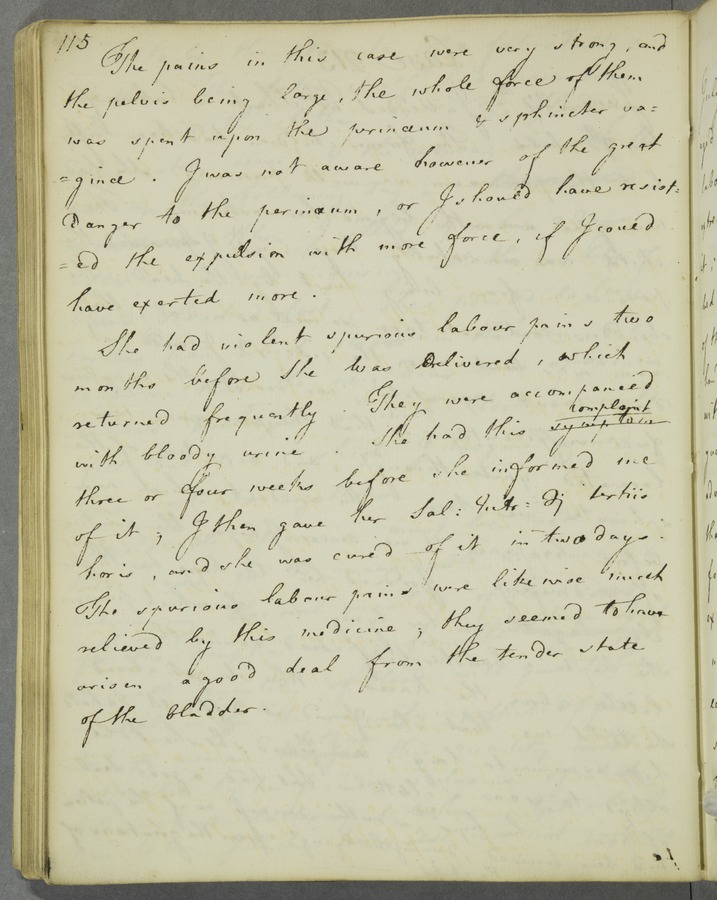 115
The pains in this case were very strong, and
the pelvis being large, the whole force of them
was spent upon the perinæum & sphincter va=
=ginæ. I was not aware however of the great
Danger to the perinæum, or I should have resist=
=ed the expulsion with more force, if I coued
have exerted more.
She had violent spurious labour pains two
months before she was Delivered, which
returned frequently. They were accompanied
complaint
with bloody urine. She had this symptom
three or four weeks before she informed me
of it; I then gave her Sal: Nitr: ʒj tertiis
horis, and she was cured of it in two days.
The spurious labour pains were likewise much
relieved by this medicine; they seemed to have
arisen a good deal from the tender state
of the bladder.